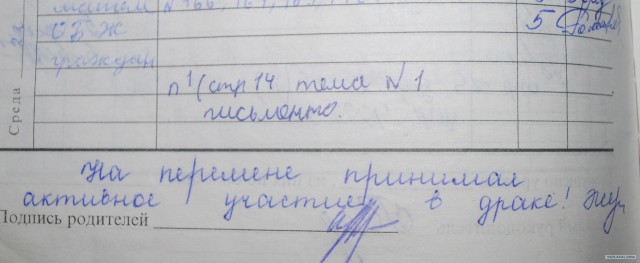 матем №166, 167, 169, 1
ОБЖ 5
граждан
Среда
п1 (стр 14 тема №1
письменно.
На перемене принимал
активное участие в драке!
Подпись родителей